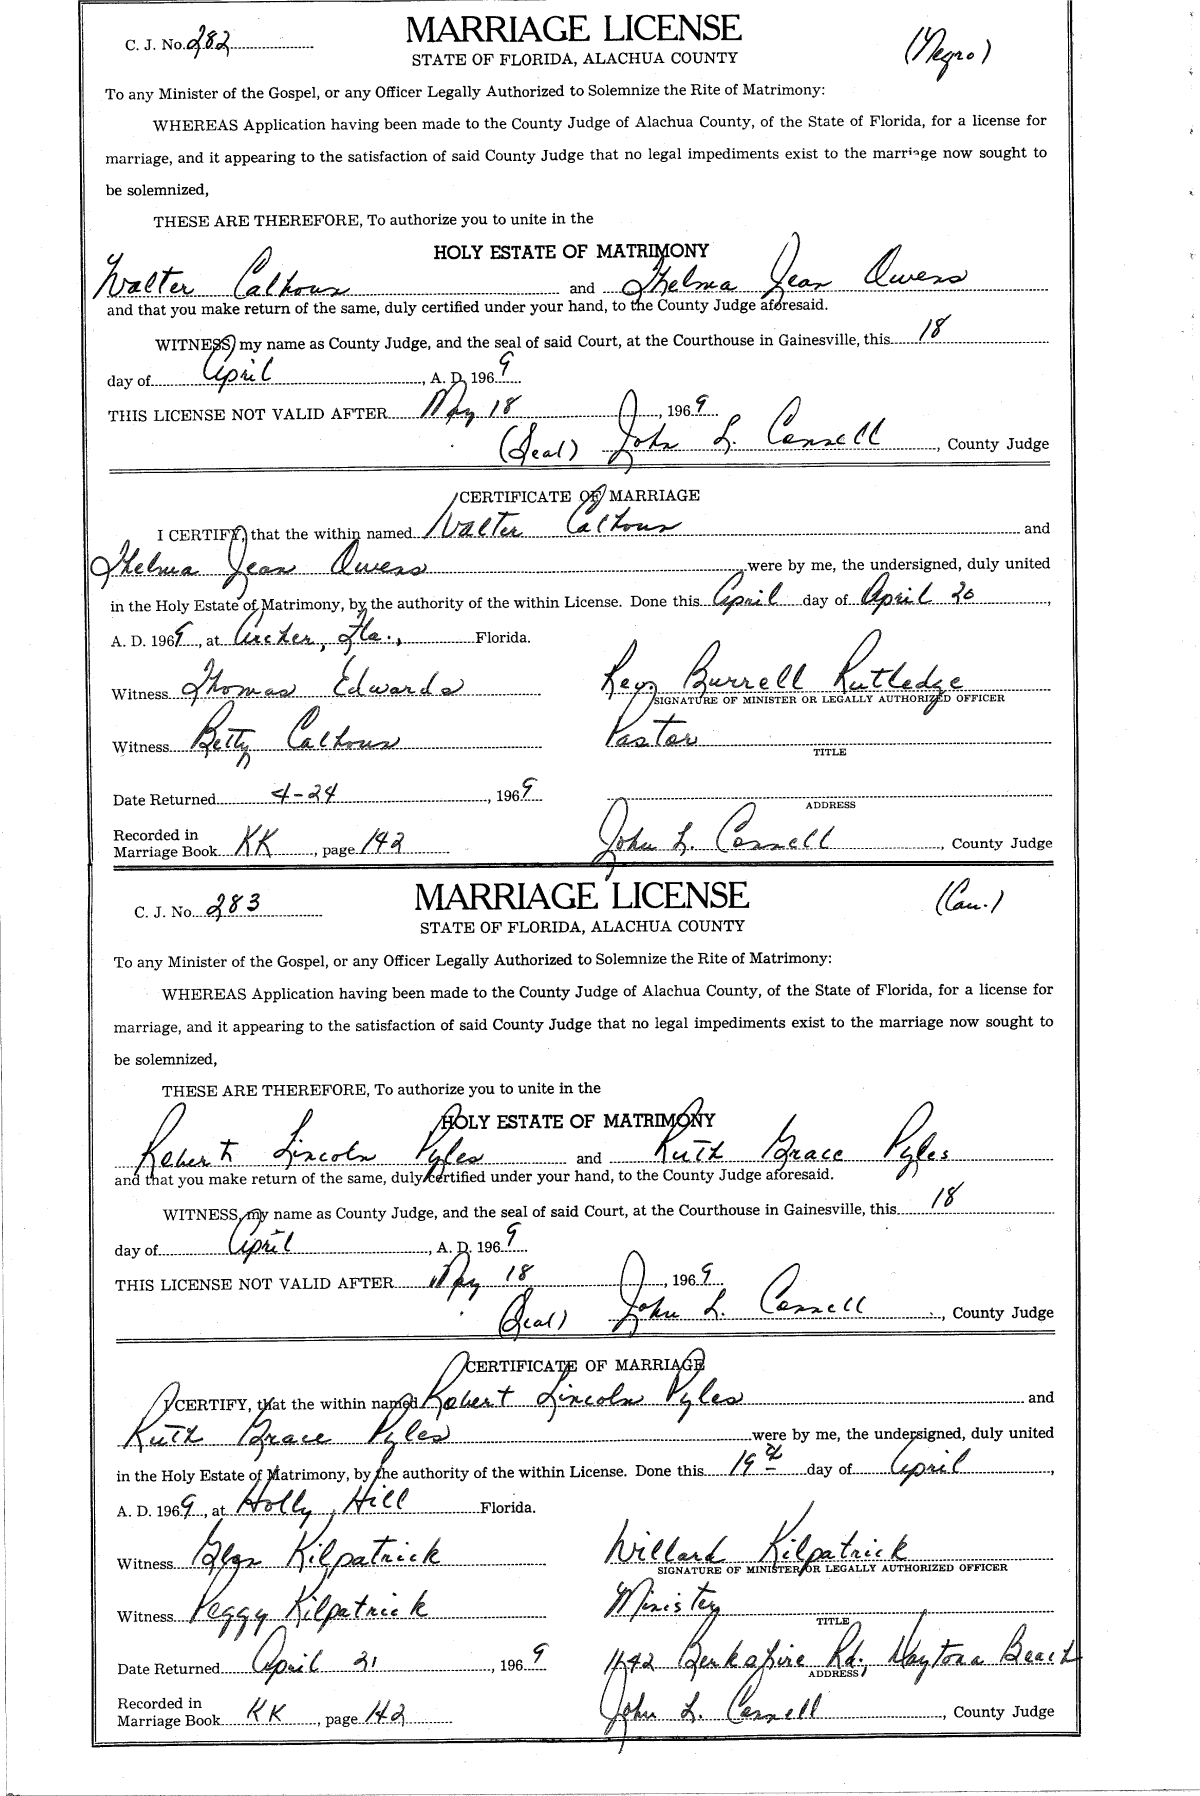 C. J. No. 282
MARRIAGE LICENSE
(Negro)
STATE OF FLORIDA, ALACHUA COUNTY
To any Minister of the Gospel, or any Officer Legally Authorized to Solemnize the Rite of Matrimony:
WHEREAS Application having been made to the County Judge of Alachua County, of the State of Florida, for a license for
marriage, and it appearing to the satisfaction of said County Judge that no legal impediments exist to the marriage now sought to
be solemnized,
THESE ARE THEREFORE, To authorize you to unite in the
HOLY ESTATE OF MATRIMONY
Walter Calhoun and Thelma Jean Owens
and that you make return of the same, duly certified under your hand, to the County Judge aforesaid.
WITNESS, my name as County Judge, and the seal of said Court, at the Courthouse in Gainesville, this 18
day of April, A. D. 1969
THIS LICENSE NOT VALID AFTER May 18, 1969
(Seal) John L. Connell, County Judge
CERTIFICATE OF MARRIAGE
I CERTIFY, that the within named Walter Calhoun and
Thelma Jean Owens were by me, the undersigned, duly united
in the Holy Estate of Matrimony, by the authority of the within License. Done this April day of April 20,
A. D. 1969, at Archer, Fla., Florida.
Witness Thomas Edwards Rev Burrell Rutledge
SIGNATURE OF MINISTER OR LEGALLY AUTHORIZED OFFICER
Witness Betty Calhoun Pastor
TITLE
Date Returned 4-24, 1969
ADDRESS
Recorded in
Marriage Book KK, page 142 John L. Connell, County Judge
C. J. No. 283
MARRIAGE LICENSE
(Cau.)
STATE OF FLORIDA, ALACHUA COUNTY
To any Minister of the Gospel, or any Officer Legally Authorized to Solemnize the Rite of Matrimony:
WHEREAS Application having been made to the County Judge of Alachua County, of the State of Florida, for a license for
marriage, and it appearing to the satisfaction of said County Judge that no legal impediments exist to the marriage now sought to
be solemnized,
THESE ARE THEREFORE, To authorize you to unite in the
HOLY ESTATE OF MATRIMONY
Robert Lincoln Pyles and Ruth Grace Pyles
and that you make return of the same, duly certified under your hand, to the County Judge aforesaid.
WITNESS, my name as County Judge, and the seal of said Court, at the Courthouse in Gainesville, this 18
day of April, A. D. 1969
THIS LICENSE NOT VALID AFTER May 18, 1969
(Seal) John L. Connell, County Judge
CERTIFICATE OF MARRIAGE
I CERTIFY, that the within named Robert Lincoln Pyles and
Ruth Grace Pyles were by me, the undersigned, duly united
in the Holy Estate of Matrimony, by the authority of the within License. Done this 19th day of April,
A. D. 1969, at Holly Hill Florida.
Witness Glyn Kilpatrick Willard Kilpatrick
SIGNATURE OF MINISTER OR LEGALLY AUTHORIZED OFFICER
Witness Peggy Kilpatrick Minister
TITLE
Date Returned April 21, 1969 1642 Berkshire Rd., Daytona Beach
ADDRESS
Recorded in
Marriage Book KK, page 142 John L. Connell, County Judge